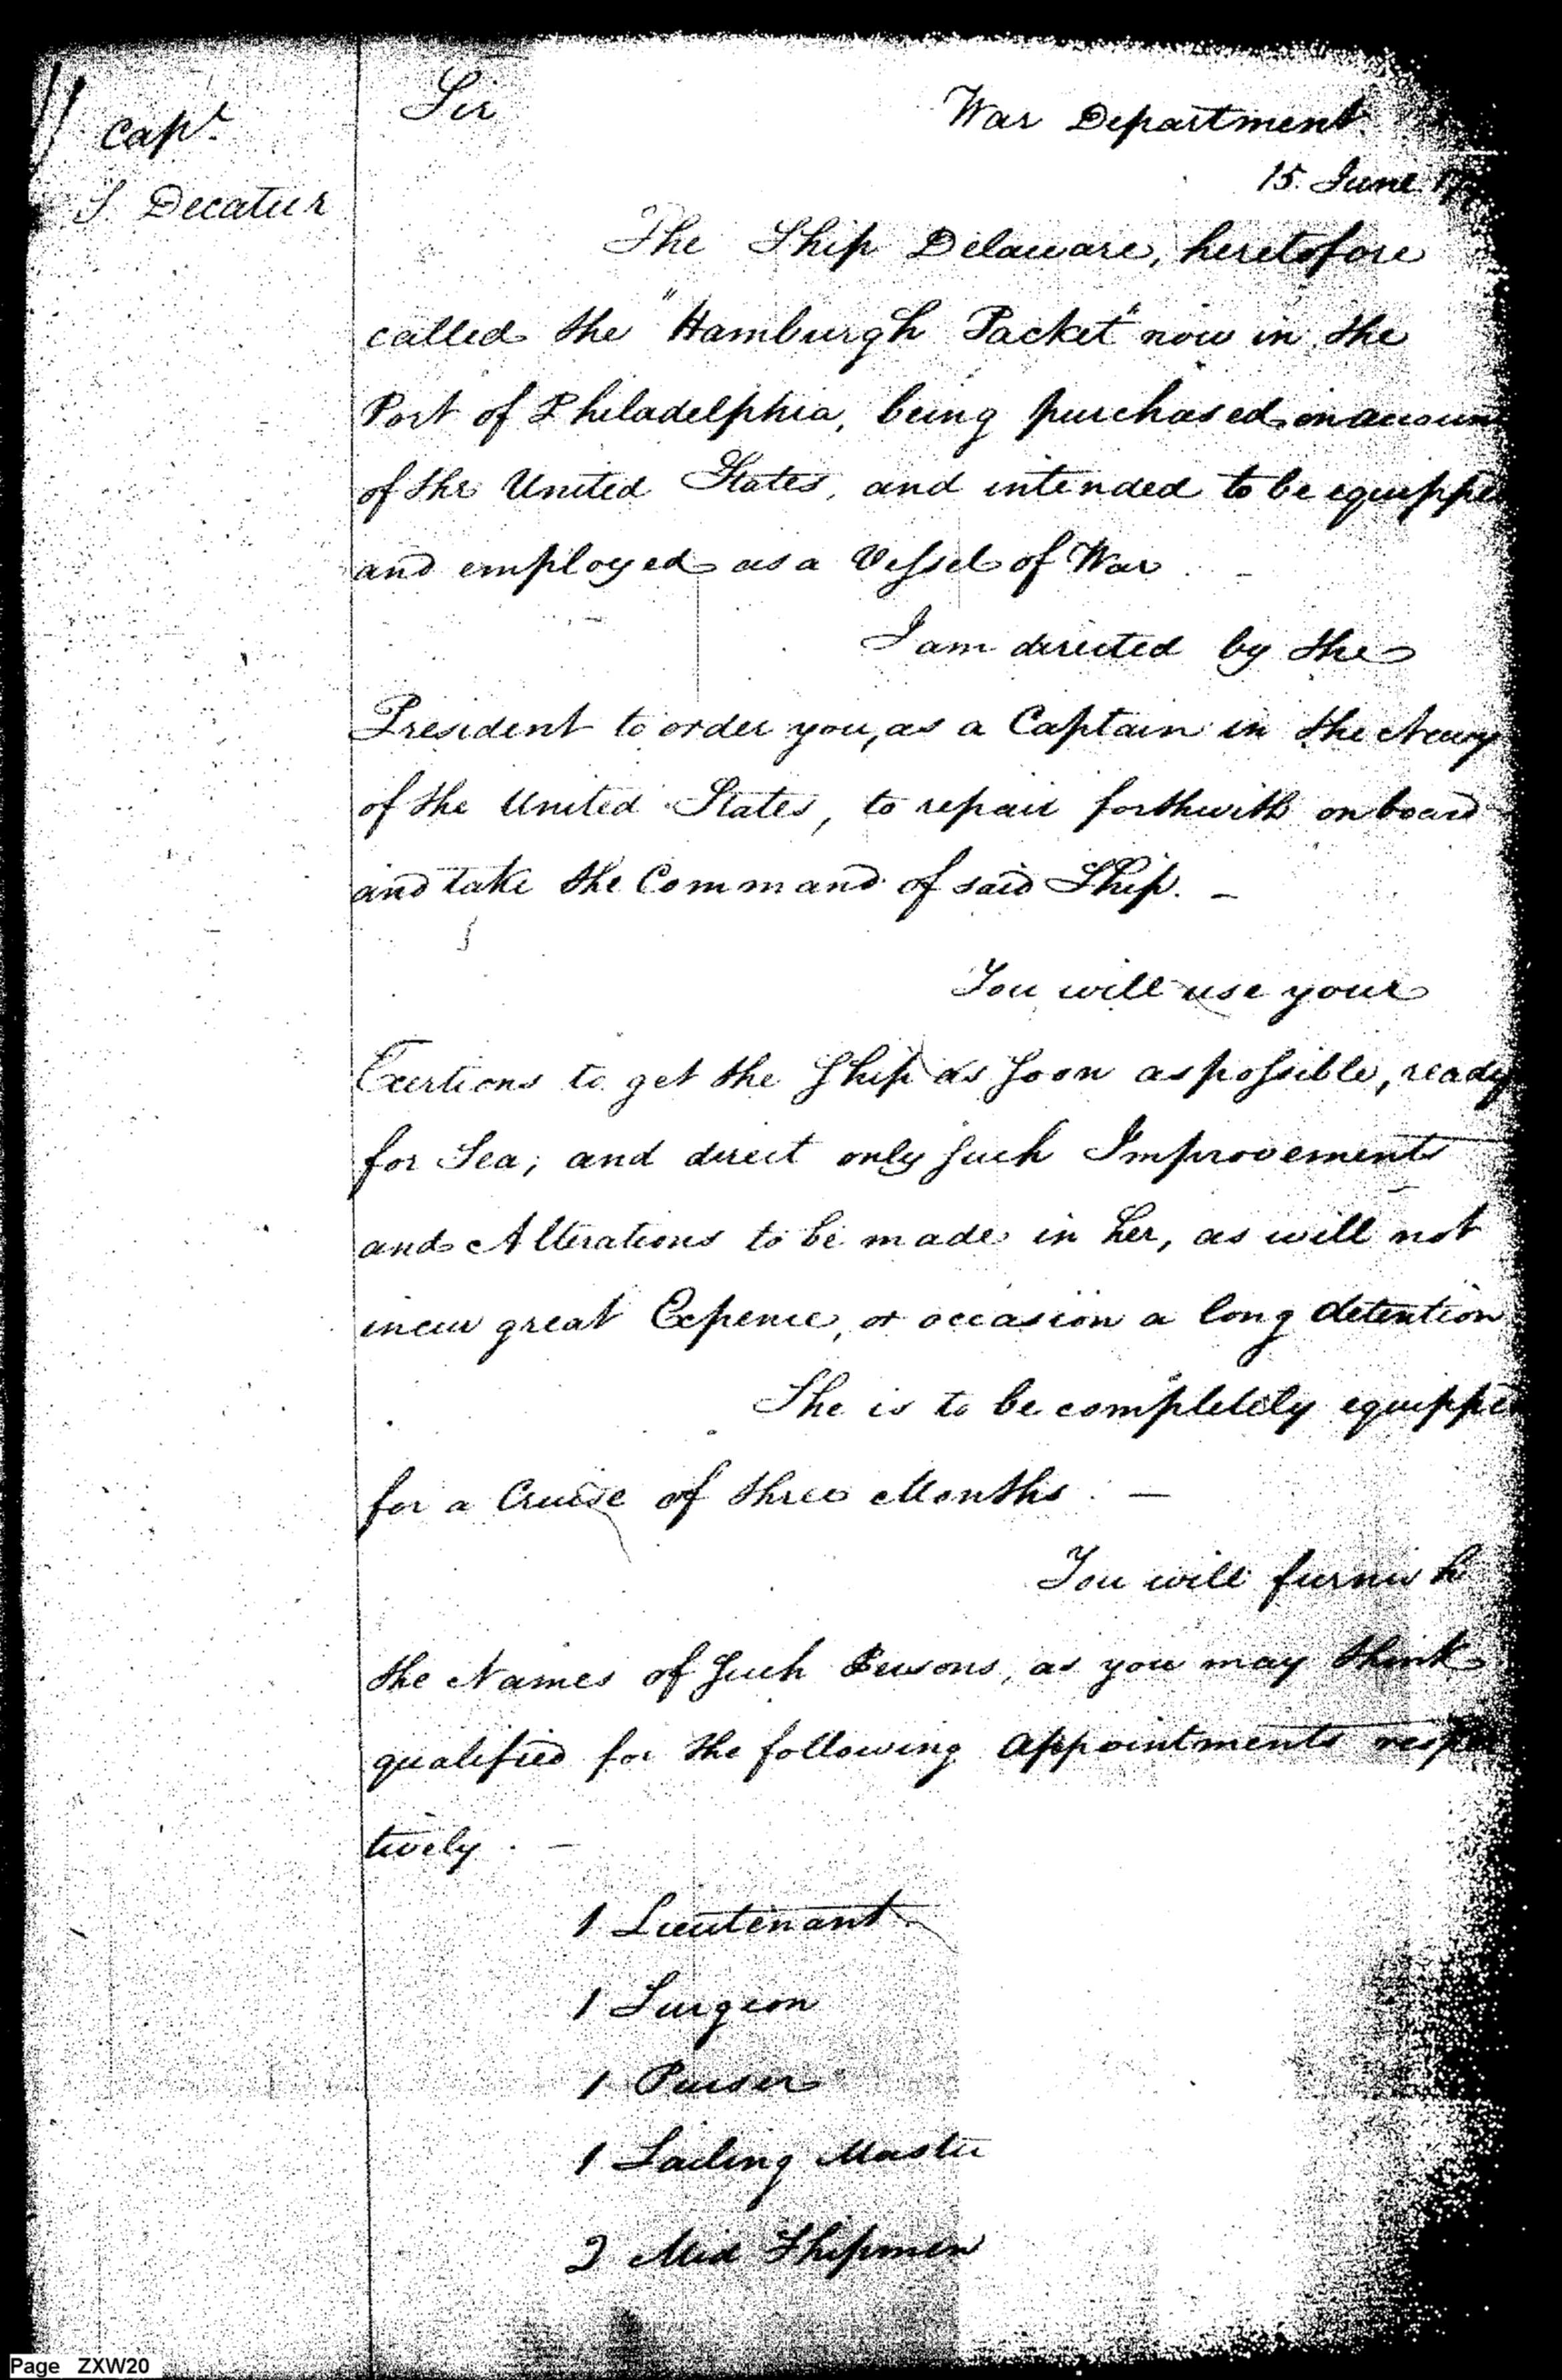 Capt.
S Decatur
Sir
War Department
15. June 17
The Ship Delaware, heretofore
called the "Hamburgh Packet" now in the
Port of Philadelphia, being purchased on accoun
of the United States, and intended to be equippe
and employed as a Vessel of War. –
I am directed by the
President to order you, as a Captain in the Navy
of the United States, to repair forthwith on board
and take the Command of said Ship. –
You will use your
Exertions to get the Ship as soon as possible, ready
for Sea; and direct only such Improvements
and Alterations to be made in her, as will not
incur great Expence, or occasion a long detention
She is to be completely equippe
for a Cruise of three Months. —
You will furnish
the Names of such Persons, as you may think
qualified for the following appointments respec
tively. –
1 Lieutenant.
1 Surgeon
1 Purser
1 Sailing Master
2 Mid Shipmen
Page ZXW20